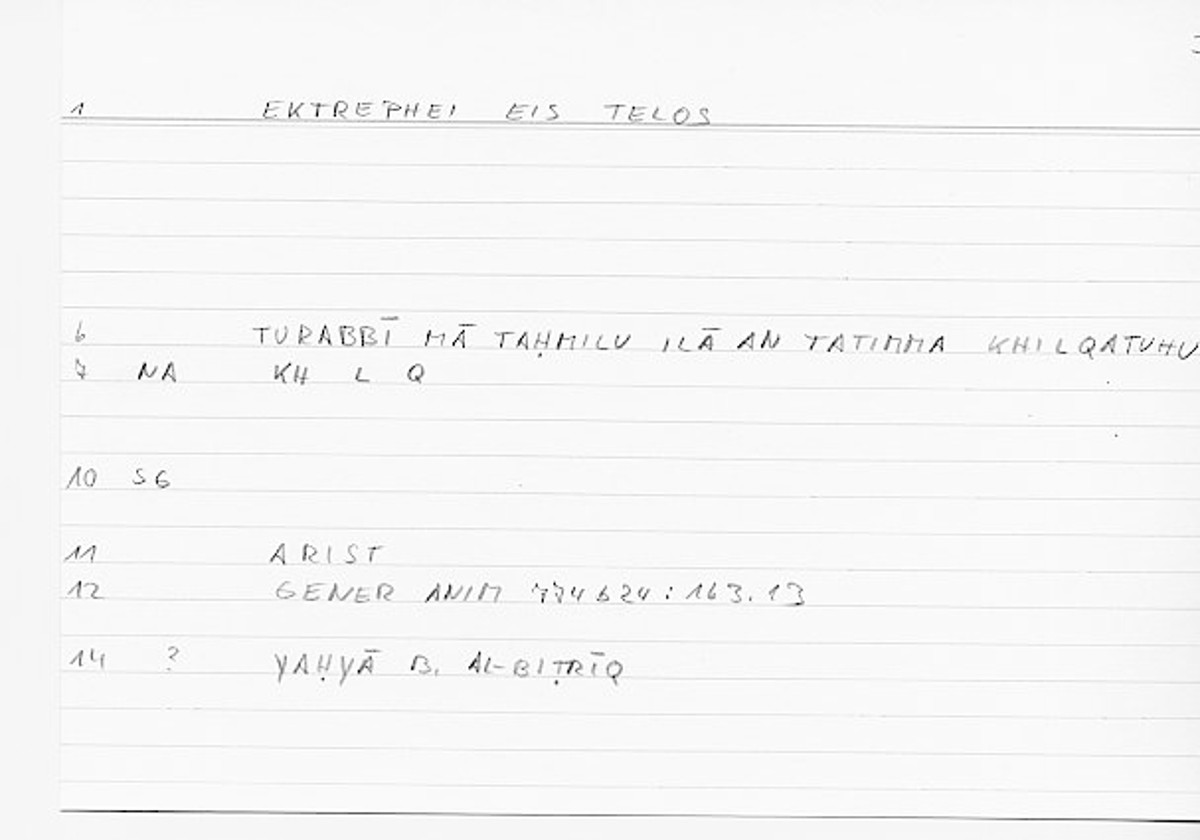 1 EKTREPHEI EIS TELOS
6 TURABBĪ MĀ TAḤMILU ILĀ AN TATIMMA KHILQATUHU
7 NA KH L Q
10 S6
11 ARIST
12 GENER ANIM 774b24 : 163.13
14 ? YAḤYĀ B. AL-BIṬRĪQ